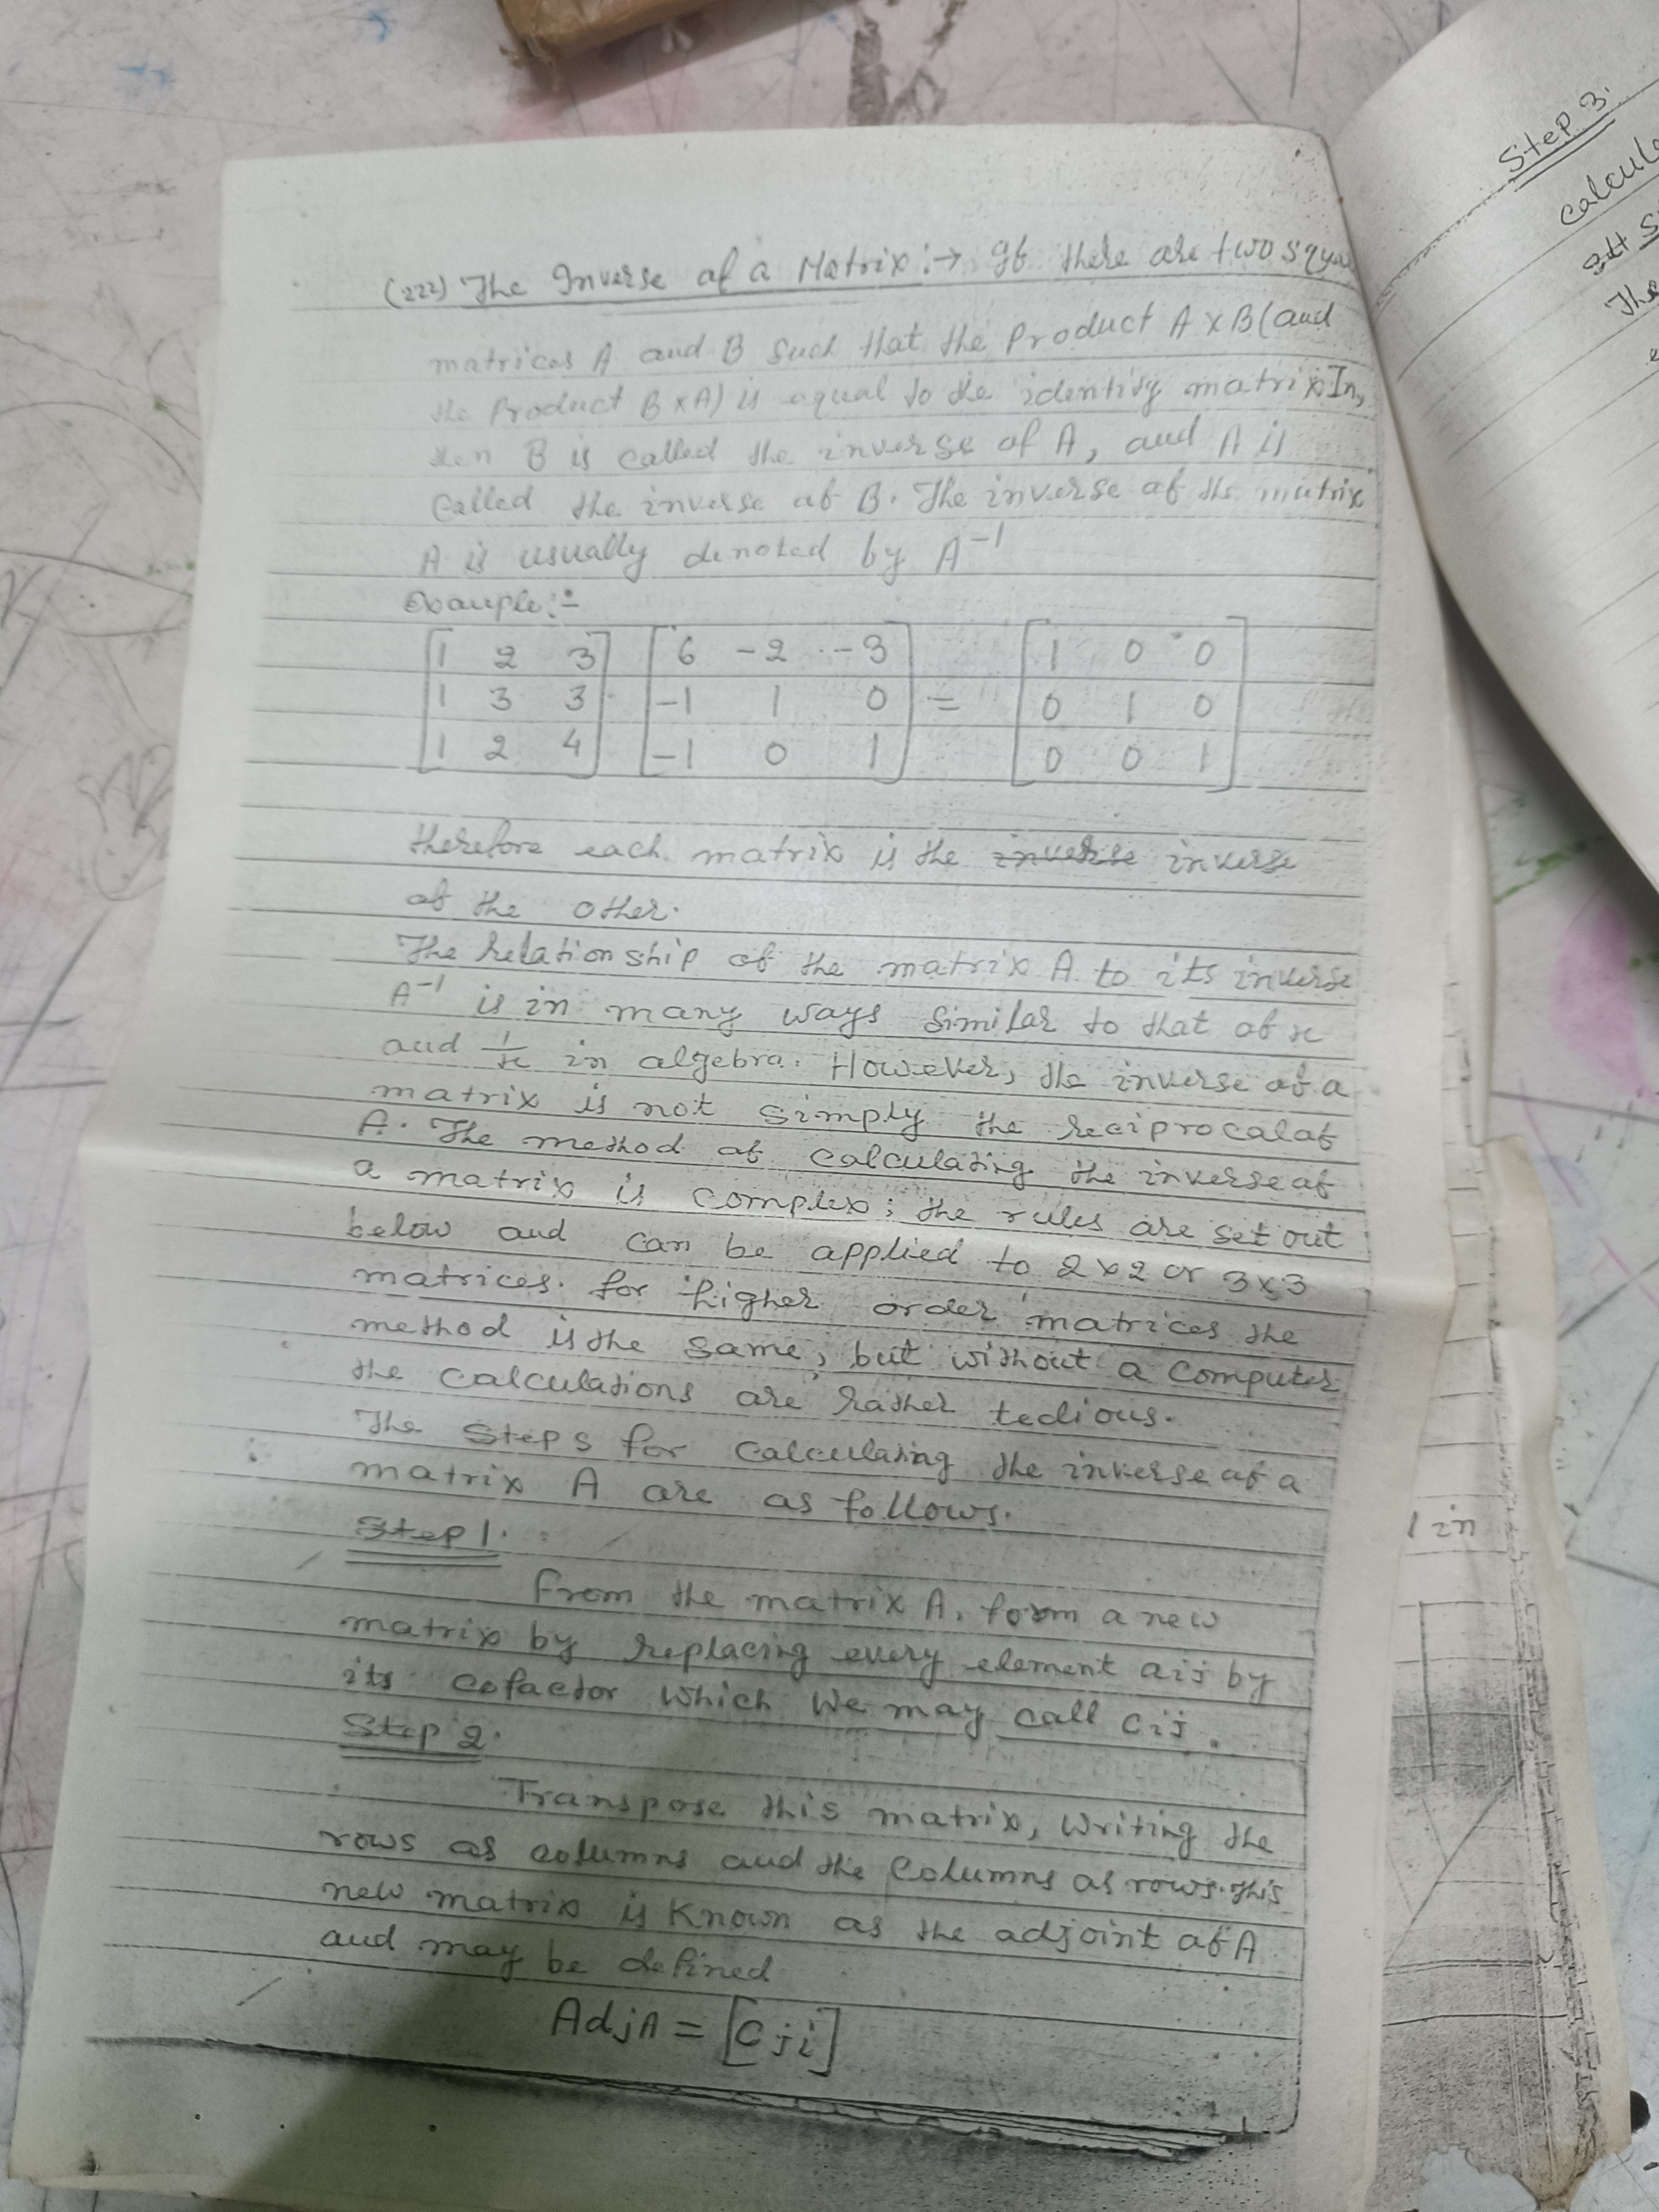 (222) The Inverse of a Matrix :→ If there are two squa
matrices A and B such that the Product A x B (and
the Product B x A) is equal to the identity matrix In,
then B is called the inverse of A, and A is
called the inverse of B. The inverse of the matrix
A is usually denoted by A⁻¹
Example:-
[1 2 3] [6 -2 -3] [1 0 0]
[1 3 3] [-1 1 0] = [0 1 0]
[1 2 4] [-1 0 1] [0 0 1]
therefore each matrix is the inverse inverse
of the other.
The relationship of the matrix A to its inverse
A⁻¹ is in many ways similar to that of x
and 1/x in algebra. However, the inverse of a
matrix is not simply the reciprocal of
A. The method of calculating the inverse of
a matrix is complex; the rules are set out
below and can be applied to 2x2 or 3x3
matrices. for higher order matrices the
method is the same, but without a computer
the calculations are rather tedious.
The Steps for calculating the inverse of a
matrix A are as follows.
Step 1.
From the matrix A, form a new
matrix by replacing every element aij by
its cofactor which we may call cij.
Step 2.
Transpose this matrix, writing the
rows as columns and the columns as rows. This
new matrix is known as the adjoint of A
and may be defined
AdjA = [cji]
Step 3.
calcul
The
l in